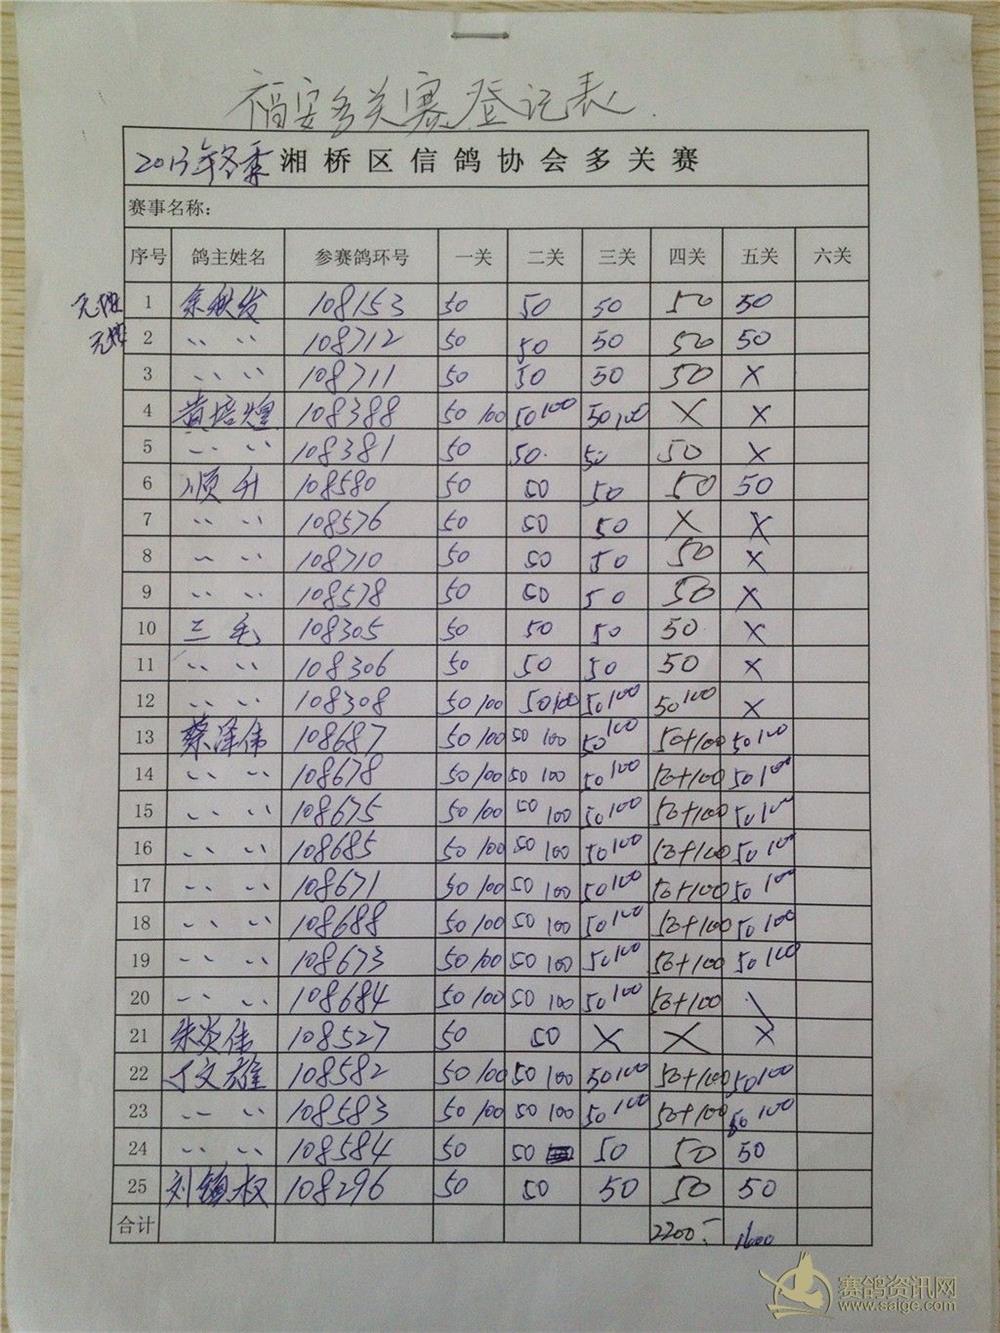 福安多关赛登记表
2013年冬季 湘桥区信鸽协会多关赛
赛事名称:
序号 鸽主姓名 参赛鸽环号 一关 二关 三关 四关 五关 六关
1 108153 50 50 50 50 50
2 〃 〃 108712 50 50 50 50 50
3 〃 〃 108711 50 50 50 50 ×
4 黄培煌 108388 50 100 50 100 50 100 × ×
5 〃 〃 108381 50 50 50 50 ×
6 顺升 108580 50 50 50 50 50
7 〃 〃 108576 50 50 50 × ×
8 〃 〃 108710 50 50 50 50 ×
9 〃 〃 108578 50 50 50 50 ×
10 三毛 108305 50 50 50 50 ×
11 〃 〃 108306 50 50 50 50 ×
12 〃 〃 108308 50 100 50 100 50 100 50 100 ×
13 蔡泽伟 108687 50 100 50 100 50 100 50+100 50 100
14 〃 〃 108678 50 100 50 100 50 100 50+100 50 100
15 〃 〃 108675 50 100 50 100 50 100 50+100 50 100
16 〃 〃 108685 50 100 50 100 50 100 50+100 50 100
17 〃 〃 108671 50 100 50 100 50 100 50+100 50 100
18 〃 〃 108688 50 100 50 100 50 100 50+100 50 100
19 〃 〃 108673 50 100 50 100 50 100 50+100 50 100
20 〃 〃 108684 50 100 50 100 50 100 50+100 \
21 朱炎伟 108527 50 50 × × ×
22 丁文雄 108582 50 100 50 100 50 100 50+100 50 100
23 〃 〃 108583 50 100 50 100 50 100 50+100 50 100
24 〃 〃 108584 50 50 50 50 50
25 刘镇权 108296 50 50 50 50 50
合计 2200 1600
赛鸽资讯网
www.saige.com